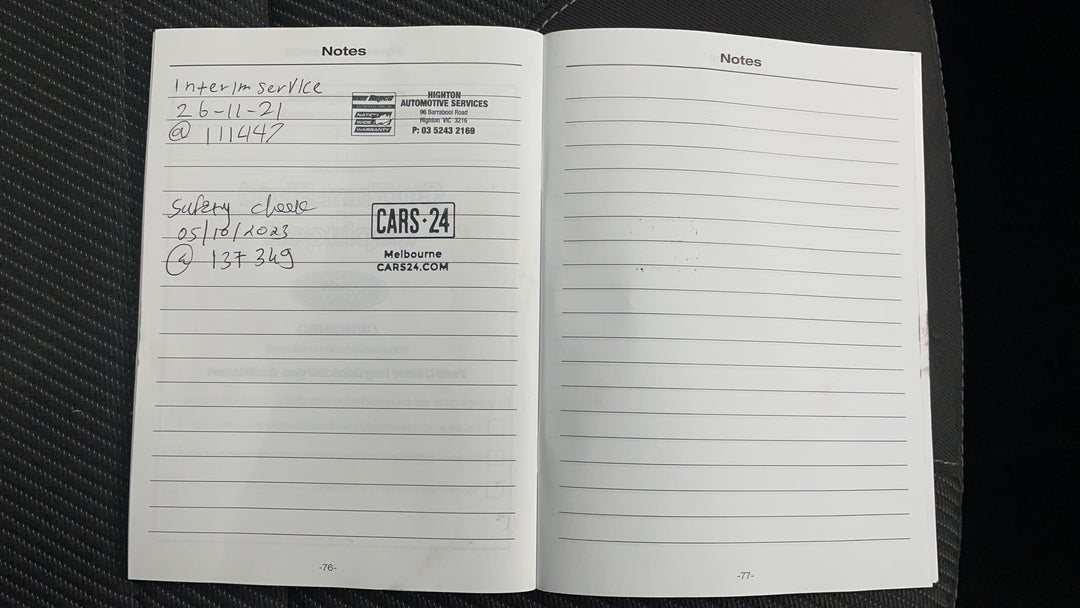 Notes
Interim service
26-11-21
@ 111447
Repco
AUTHORISED SERVICE
NATION
WIDE
WARRANTY
HIGHTON
AUTOMOTIVE SERVICES
96 Barrabool Road
Highton VIC 3216
P: 03 5243 2169
Safety check
05/10/2023
@ 137349
CARS·24
Melbourne
CARS24.COM
-76-
Notes
-77-